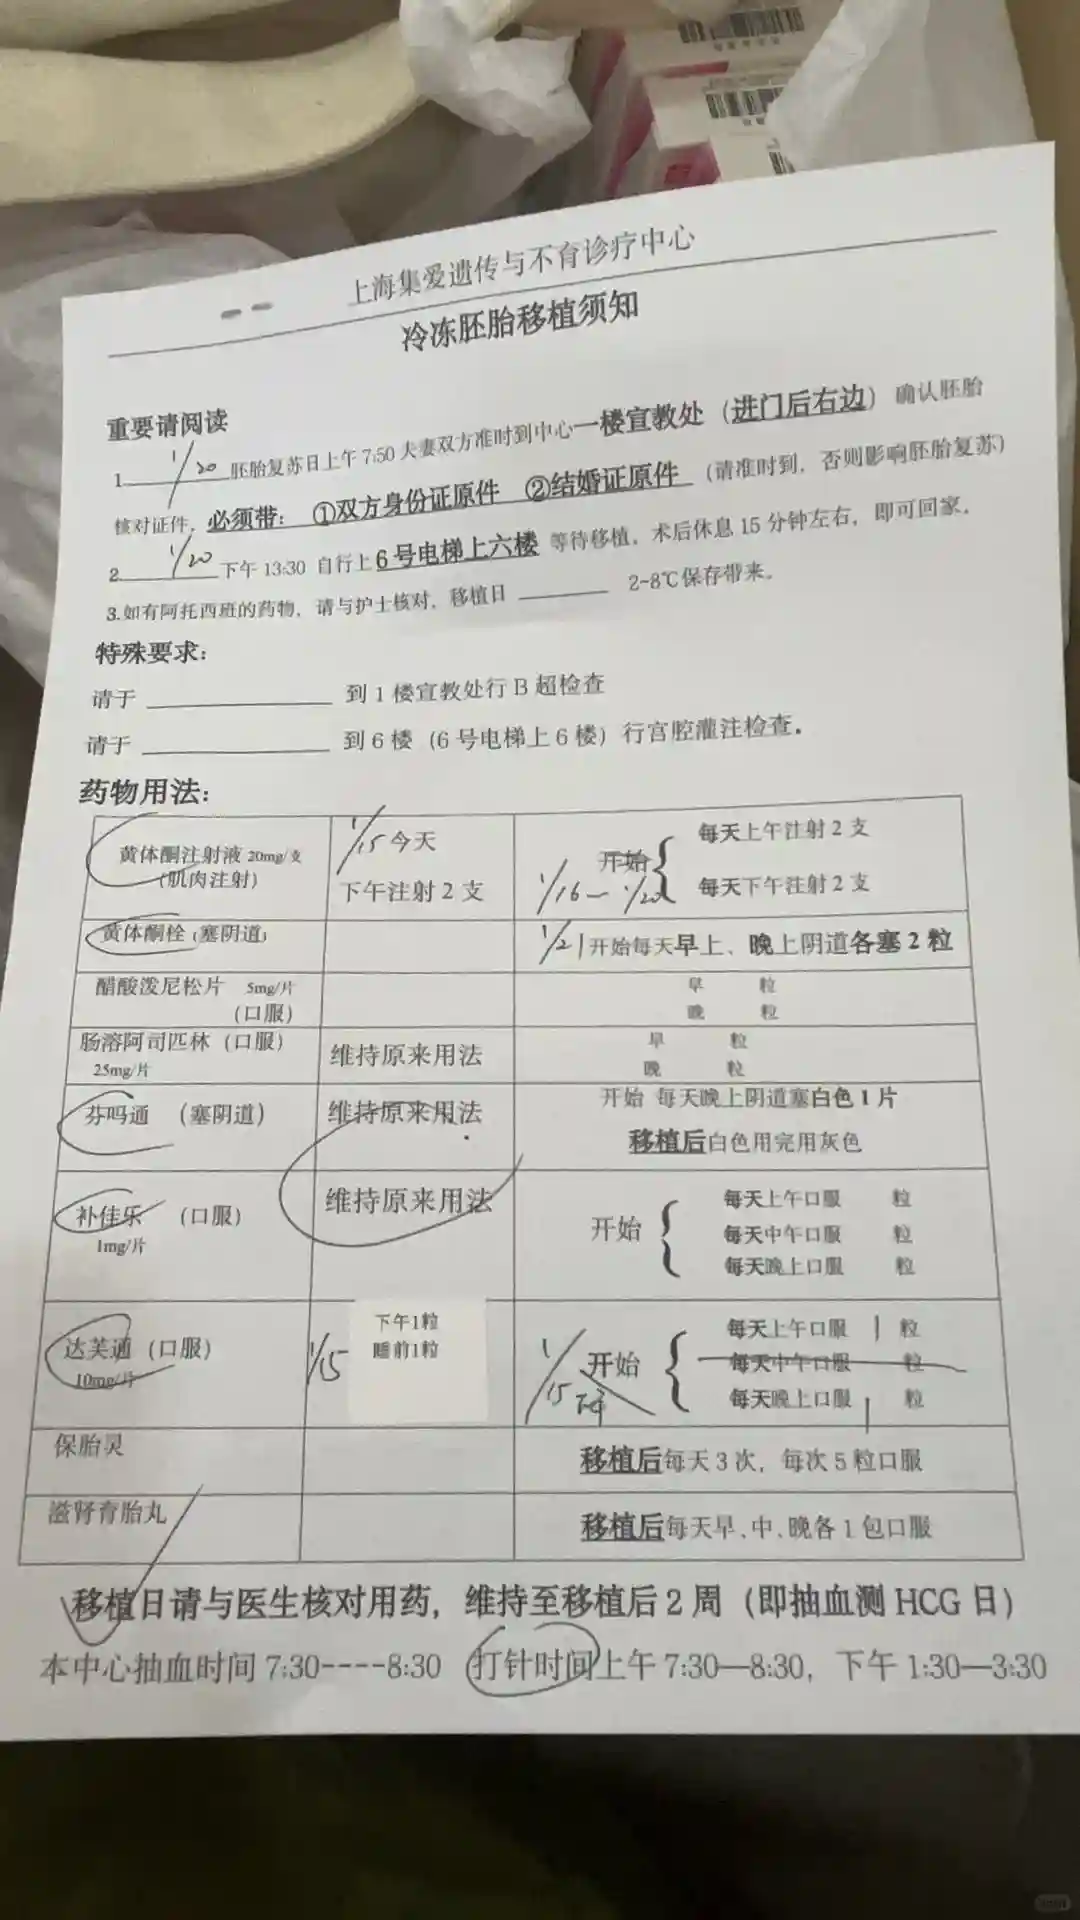 上海集爱遗传与不育诊疗中心
冷冻胚胎移植须知
重要请阅读
1.1/20 胚胎复苏日上午 7:50 夫妻双方准时到中心一楼宣教处（进门后右边）确认胚胎
核对证件，必须带： ①双方身份证原件 ②结婚证原件 （请准时到，否则影响胚胎复苏）
2.1/20 下午 13:30 自行上 6 号电梯上六楼 等待移植，术后休息 15 分钟左右，即可回家。
3.如有阿托西班的药物，请与护士核对，移植日 ______ 2-8℃保存带来。
特殊要求：
请于 ______ 到 1 楼宣教处行 B 超检查
请于 ______ 到 6 楼（6 号电梯上 6 楼）行宫腔灌注检查。
药物用法：
黄体酮注射液 20mg/支
（肌肉注射）
1/15 今天
下午注射 2 支
开始
1/16— 1/20
每天上午注射 2 支
每天下午注射 2 支
黄体酮栓（塞阴道）
1/21 开始每天早上、晚上阴道各塞 2 粒
醋酸泼尼松片 5mg/片
（口服）
早 粒
晚 粒
肠溶阿司匹林（口服）
25mg/片
维持原来用法
早 粒
晚 粒
芬吗通 （塞阴道）
维持原来用法
开始 每天晚上阴道塞白色 1 片
移植后白色用完用灰色
补佳乐 （口服）
1mg/片
维持原来用法
开始
每天上午口服 粒
每天中午口服 粒
每天晚上口服 粒
达芙通（口服）
10mg/片
1/15
下午1粒
睡前1粒
1/15 开始
每天上午口服 1 粒
每天中午口服 粒
每天晚上口服 1 粒
保胎灵
移植后每天 3 次，每次 5 粒口服
滋肾育胎丸
移植后每天早、中、晚各 1 包口服
移植日请与医生核对用药，维持至移植后 2 周（即抽血测 HCG 日）
本中心抽血时间 7:30----8:30 打针时间上午 7:30—8:30，下午 1:30—3:30